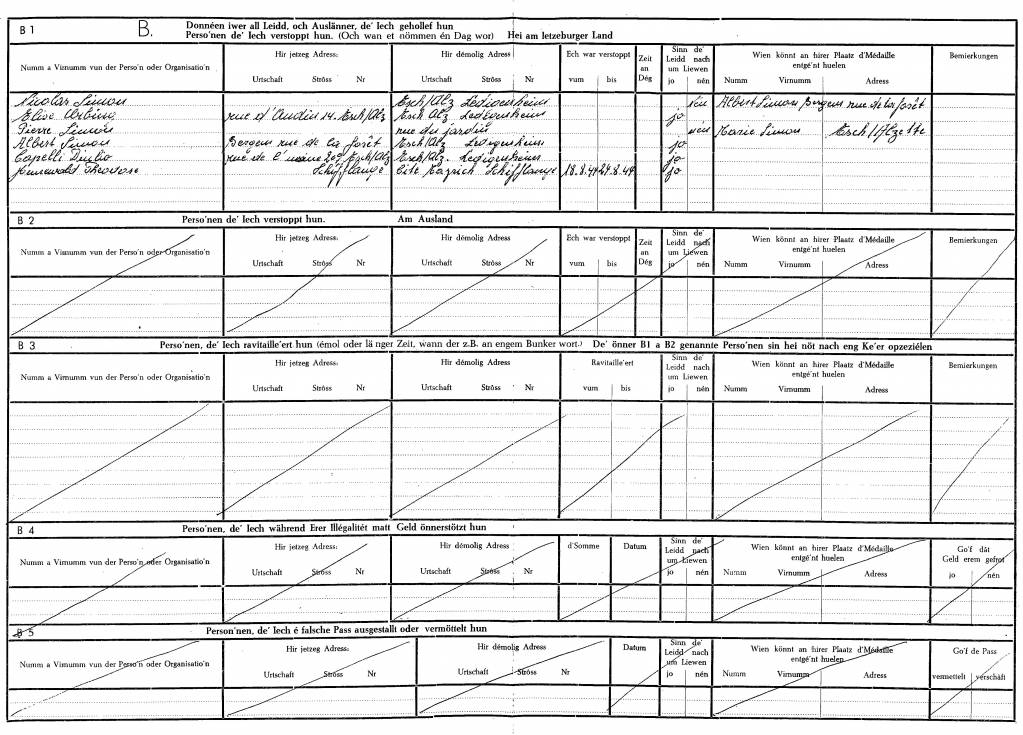 B 1 B. Donnéen iwer all Leidd, och Auslänner, de' Iech gehollef hun
Perso'nen de' Iech verstoppt hun. (Och wan et nömmen én Dag wor) Hei am letzeburger Land
Numm a Virnumm vun der Perso'n oder Organisatio'n
Hir jetzeg Adress:
Urtschaft Ströss Nr
Hir démolig Adress:
Urtschaft Ströss Nr
Ech war verstoppt
vum bis
Zeit an Dég
Sinn de' Leidd nach um Liewen
jo nén
Wien könnt an hirer Plaatz d'Médaille entgé'nt huelen
Numm Virnumm Adress
Bemierkungen
Nicolas Simon Esch/Alz Ledigenheim nén Albert Simon Bergem rue de la forêt
Elise rue d'Audun 14. Esch/Alz Esch Alz Ledigenheim jo
Pierre Simon rue du jardin nén Marie Simon Esch/Alzette
Albert Simon Bergem rue de la forêt Esch/Alz Ledigenheim jo
Capelli rue de l'usine Esch/Alz Esch/Alz. Ledigenheim jo
Schifflange Cité Schifflange 18.8.44 24.8.44 jo
B 2 Perso'nen de' Iech verstoppt hun. Am Ausland
Numm a Virnumm vun der Perso'n oder Organisatio'n
Hir jetzeg Adress:
Urtschaft Ströss Nr
Hir démolig Adress
Urtschaft Ströss Nr
Ech war verstoppt
vum bis
Zeit an Dég
Sinn de' Leidd nach um Liewen
jo nén
Wien könnt an hirer Plaatz d'Médaille entgé'nt huelen
Numm Virnumm Adress
Bemierkungen
B 3 Perso'nen, de' Iech ravitaille'ert hun (émol oder länger Zeit, wann der z.B. an engem Bunker wort.) De' önner B1 a B2 genannte Perso'nen sin hei nöt nach eng Ke'er opzeziélen
Numm a Virnumm vun der Perso'n oder Organisatio'n
Hir jetzeg Adress:
Urtschaft Ströss Nr
Hir démolig Adress
Urtschaft Ströss Nr
Ravitaille'ert
vum bis
Sinn de' Leidd nach um Liewen
jo nén
Wien könnt an hirer Plaatz d'Médaille entgé'nt huelen
Numm Virnumm Adress
Bemierkungen
B 4 Perso'nen, de' Iech während Erer Illégalitét matt Geld önnerstötzt hun
Numm a Virnumm vun der Perso'n oder Organisatio'n
Hir jetzeg Adress:
Urtschaft Ströss Nr
Hir démolig Adress
Urtschaft Ströss Nr
d'Somme
Datum
Sinn de' Leidd nach um Liewen
jo nén
Wien könnt an hirer Plaatz d'Médaille entgé'nt huelen
Numm Virnumm Adress
Go'f dât Geld erem gefrot
jo nén
B 5 Person'nen, de' Iech é falsche Pass ausgestallt oder vermöttelt hun
Numm a Virnumm vun der Perso'n oder Organisatio'n
Hir jetzeg Adress:
Urtschaft Ströss Nr
Hir démolig Adress
Urtschaft Ströss Nr
Datum
Sinn de' Leidd nach um Liewen
jo nén
Wien könnt an hirer Plaatz d'Médaille entgé'nt huelen
Numm Virnumm Adress
Go'f de Pass
vermettelt verschâft